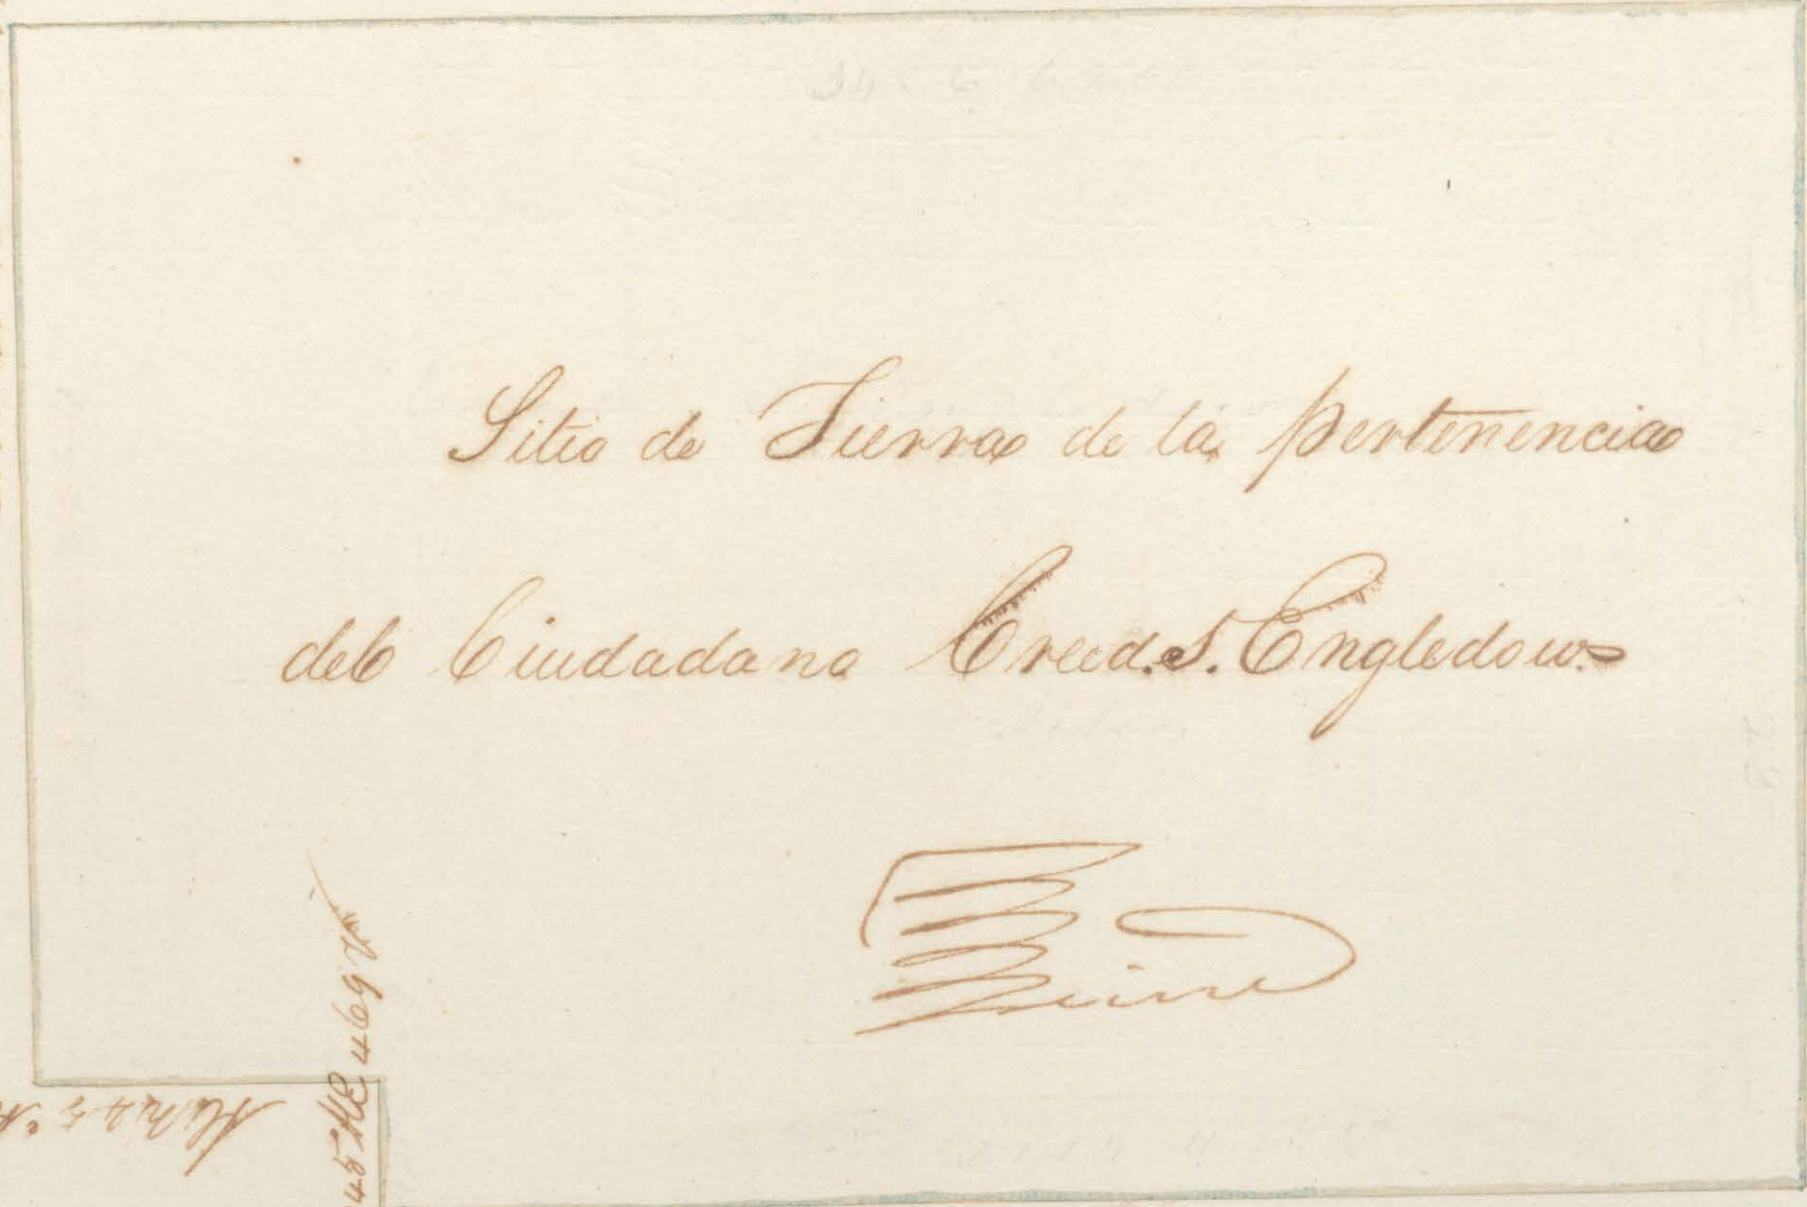 Sitio de Tierra de la pertenencia
del Ciudadano Creed. S. Engledow.
45°